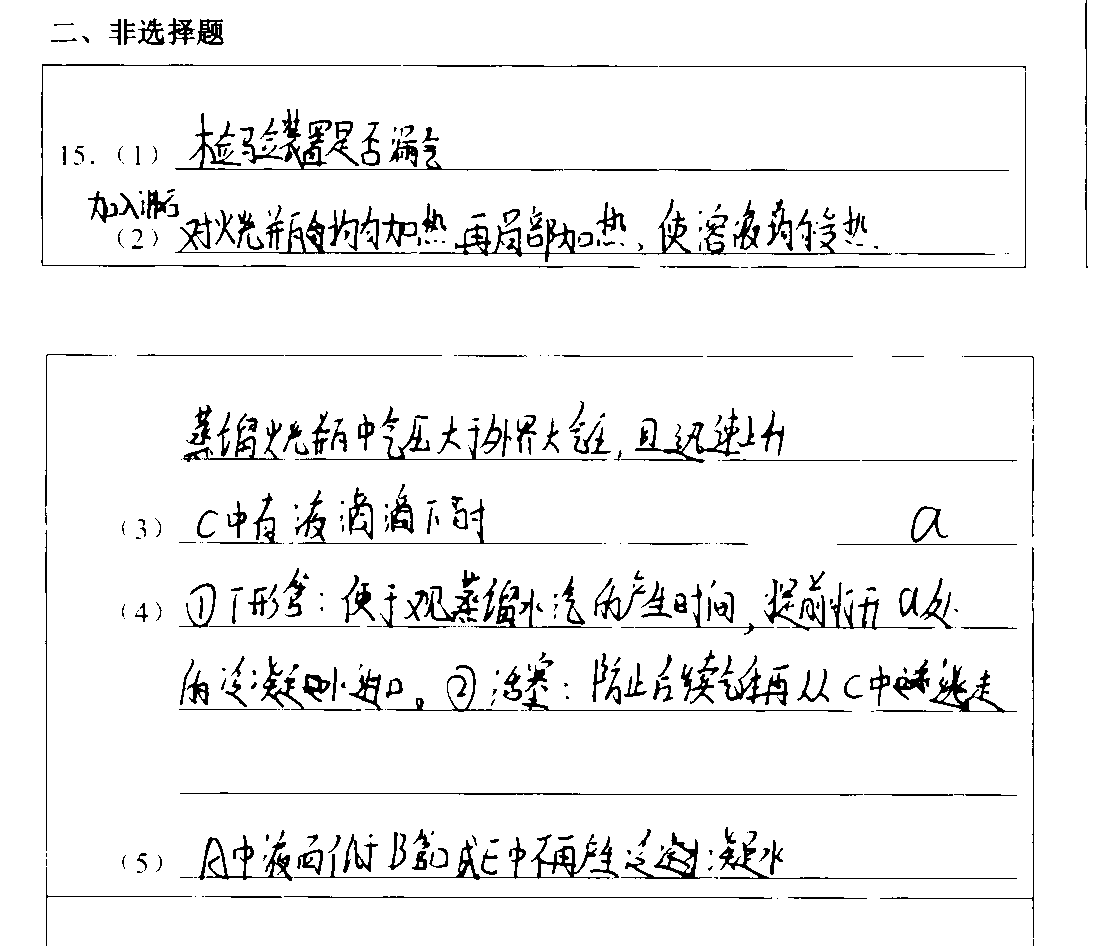 二、非选择题
15.（1）检验装置是否漏气
加入沸石
（2）对烧瓶均匀加热再局部加热，使溶液均匀受热.
蒸馏烧瓶中气压大于外界大气压，且迅速上升
（3）C中有液滴滴下时 a
（4）①T形管：便于观蒸馏水汽的产生时间，提前打开a处
的冷凝水进口。②活塞：防止后续气体再从C中逃走
（5）A中液面低于B管口或E中不再产生冷凝水